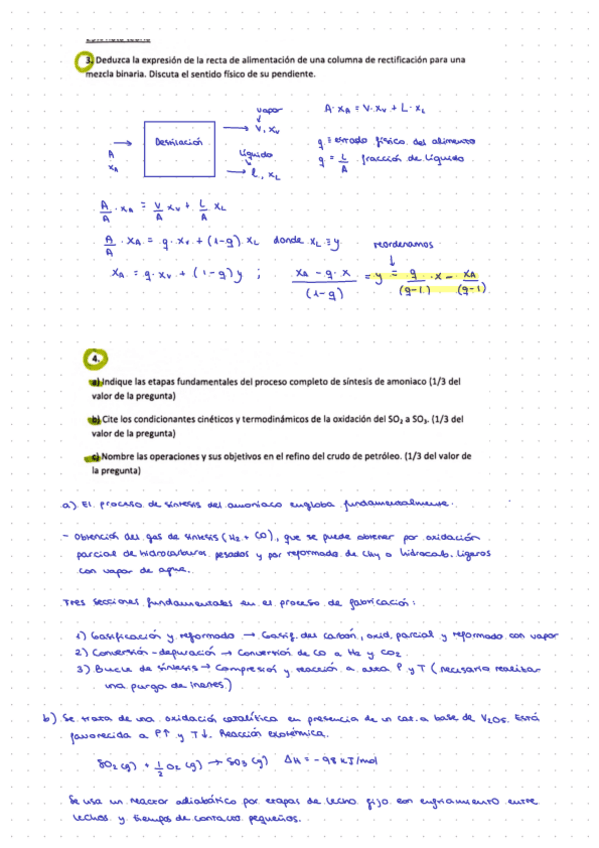 3. Deduzca la expresión de la recta de alimentación de una columna de rectificación para una
mezcla binaria. Discuta el sentido físico de su pendiente.
A
x_A
Destilación
vapor
V, x_V
Líquido
L, x_L
A · x_A = V · x_V + L · x_L
q ≡ estado físico del alimento
q = L/A fracción de líquido
A/A · x_A = V/A x_V + L/A x_L
A/A · x_A = q · x_V + (1-q) x_L donde x_L ≡ y
reordenamos
x_A = q · x_V + (1-q) y ; (x_A - q · x)/(1-q) = y = q/(q-1) · x - x_A/(q-1)
4.
a) Indique las etapas fundamentales del proceso completo de síntesis de amoniaco (1/3 del
valor de la pregunta)
b) Cite los condicionantes cinéticos y termodinámicos de la oxidación del SO₂ a SO₃. (1/3 del
valor de la pregunta)
c) Nombre las operaciones y sus objetivos en el refino del crudo de petróleo. (1/3 del valor de
la pregunta)
a) El proceso de síntesis del amoniaco engloba fundamentalmente:
- Obtención del gas de síntesis (H₂ + CO), que se puede obtener por oxidación
parcial de hidrocarburos pesados y por reformado de CH₄ o hidrocarb. ligeros
con vapor de agua.
Tres secciones fundamentales en el proceso de fabricación:
1) Gasificación y reformado → Gasif. del carbón, oxid. parcial y reformado con vapor
2) Conversión - depuración → Conversión de CO a H₂ y CO₂
3) Bucle de síntesis → Compresión y reacción a alta P y T (necesario realizar
una purga de inertes.)
b) Se trata de una oxidación catalítica en presencia de un cat. a base de V₂O₅. Está
favorecida a P↑ y T↓. Reacción exotérmica.
SO₂(g) + 1/2 O₂(g) → SO₃(g) ΔH = -98 kJ/mol
Se usa un reactor adiabático por etapas de lecho fijo con enfriamiento entre
lechos y tiempos de contacto pequeños.